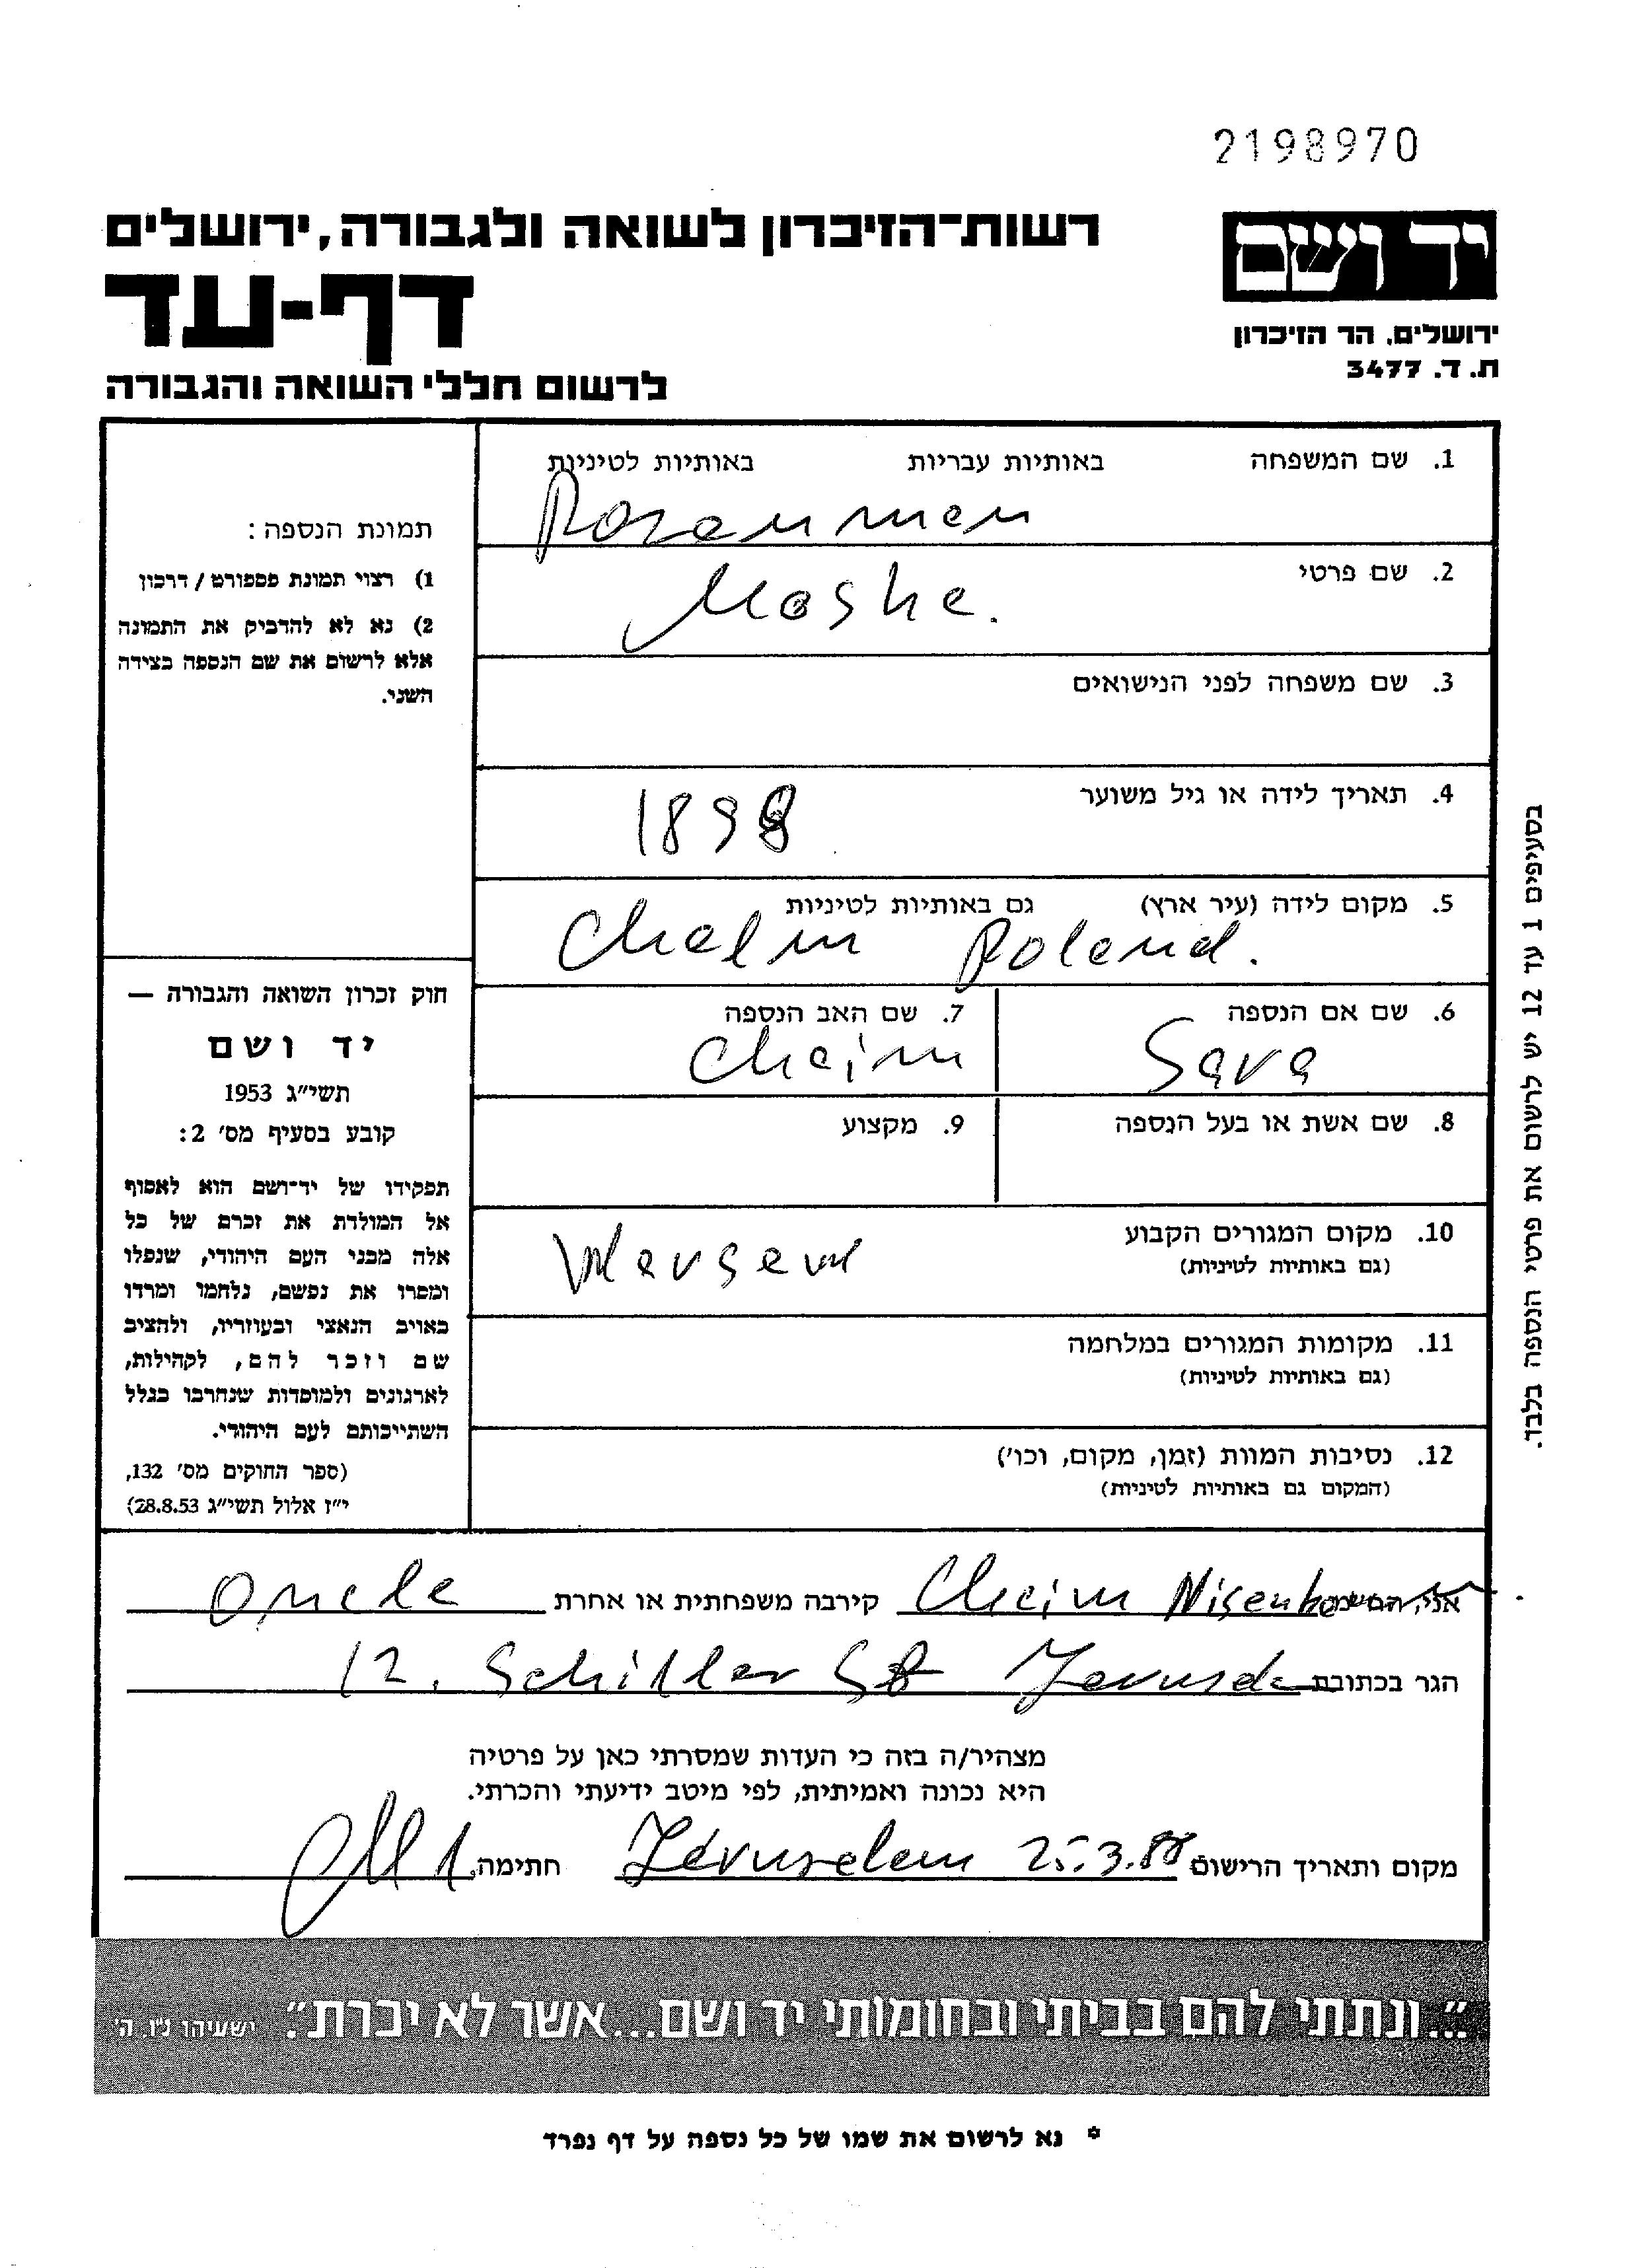 2198970
יד ושם
ירושלים, הר הזיכרון
ת. ד. 3477
רשות־הזיכרון לשואה ולגבורה, ירושלים
דף-עד
לרשום חללי השואה והגבורה
1. שם המשפחה באותיות עבריות באותיות לטיניות
Rozenman
2. שם פרטי
Moshe.
3. שם משפחה לפני הנישואים
4. תאריך לידה או גיל משוער
1898
5. מקום לידה (עיר ארץ) גם באותיות לטיניות
Chelm Poland.
6. שם אם הנספה
Sara
7. שם האב הנספה
Chaim
8. שם אשת או בעל הנספה
9. מקצוע
10. מקום המגורים הקבוע
(גם באותיות לטיניות)
Warsaw
11. מקומות המגורים במלחמה
(גם באותיות לטיניות)
12. נסיבות המוות (זמן, מקום, וכו')
(המקום גם באותיות לטיניות)
תמונת הנספה:
1) רצוי תמונת פספורט / דרכון
2) נא לא להדביק את התמונה
אלא לרשום את שם הנספה בצידה
השני.
חוק זכרון השואה והגבורה —
יד ושם
תשי״ג 1953
קובע בסעיף מס׳ 2:
תפקידו של יד־ושם הוא לאסוף
אל המולדת את זכרם של כל
אלה מבני העם היהודי, שנפלו
ומסרו את נפשם, נלחמו ומרדו
באויב הנאצי ובעוזריו, ולהציב
שם וזכר להם, לקהילות,
לארגונים ולמוסדות שנחרבו בגלל
השתייכותם לעם היהודי.
(ספר החוקים מס׳ 132,
י״ז אלול תשי״ג 28.8.53)
בסעיפים 1 עד 12 יש לרשום את פרטי הנספה בלבד.
אני, Chaim קירבה משפחתית או אחרת Oncle
הגר בכתובת 12. Schiller St
מצהיר/ה בזה כי העדות שמסרתי כאן על פרטיה
היא נכונה ואמיתית, לפי מיטב ידיעתי והכרתי.
מקום ותאריך הרישום Jérusalem 25.3.88 חתימה
"...ונתתי להם בביתי ובחומותי יד ושם...אשר לא יכרת". ישעיהו נ"ו, ה'
* נא לרשום את שמו של כל נספה על דף נפרד